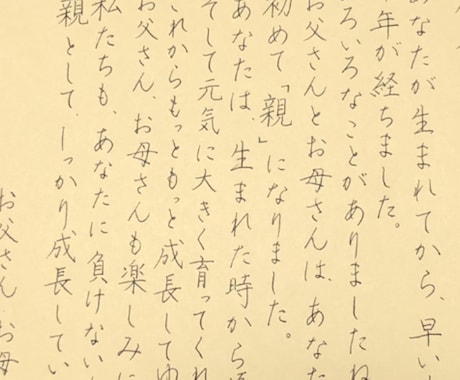 あなたが生まれてから、早い
年が経ちました。
ろいろなことがありましたね
お父さんとお母さんは、あなた
初めて「親」になりました。
あなたは、生まれた時から
そして元気に大きく育ってくれ
これからもっともっと成長してゆ
お父さん、お母さんも楽しみに
私たちも、あなたに負けない
親として、しっかり成長してい
お父さん お母